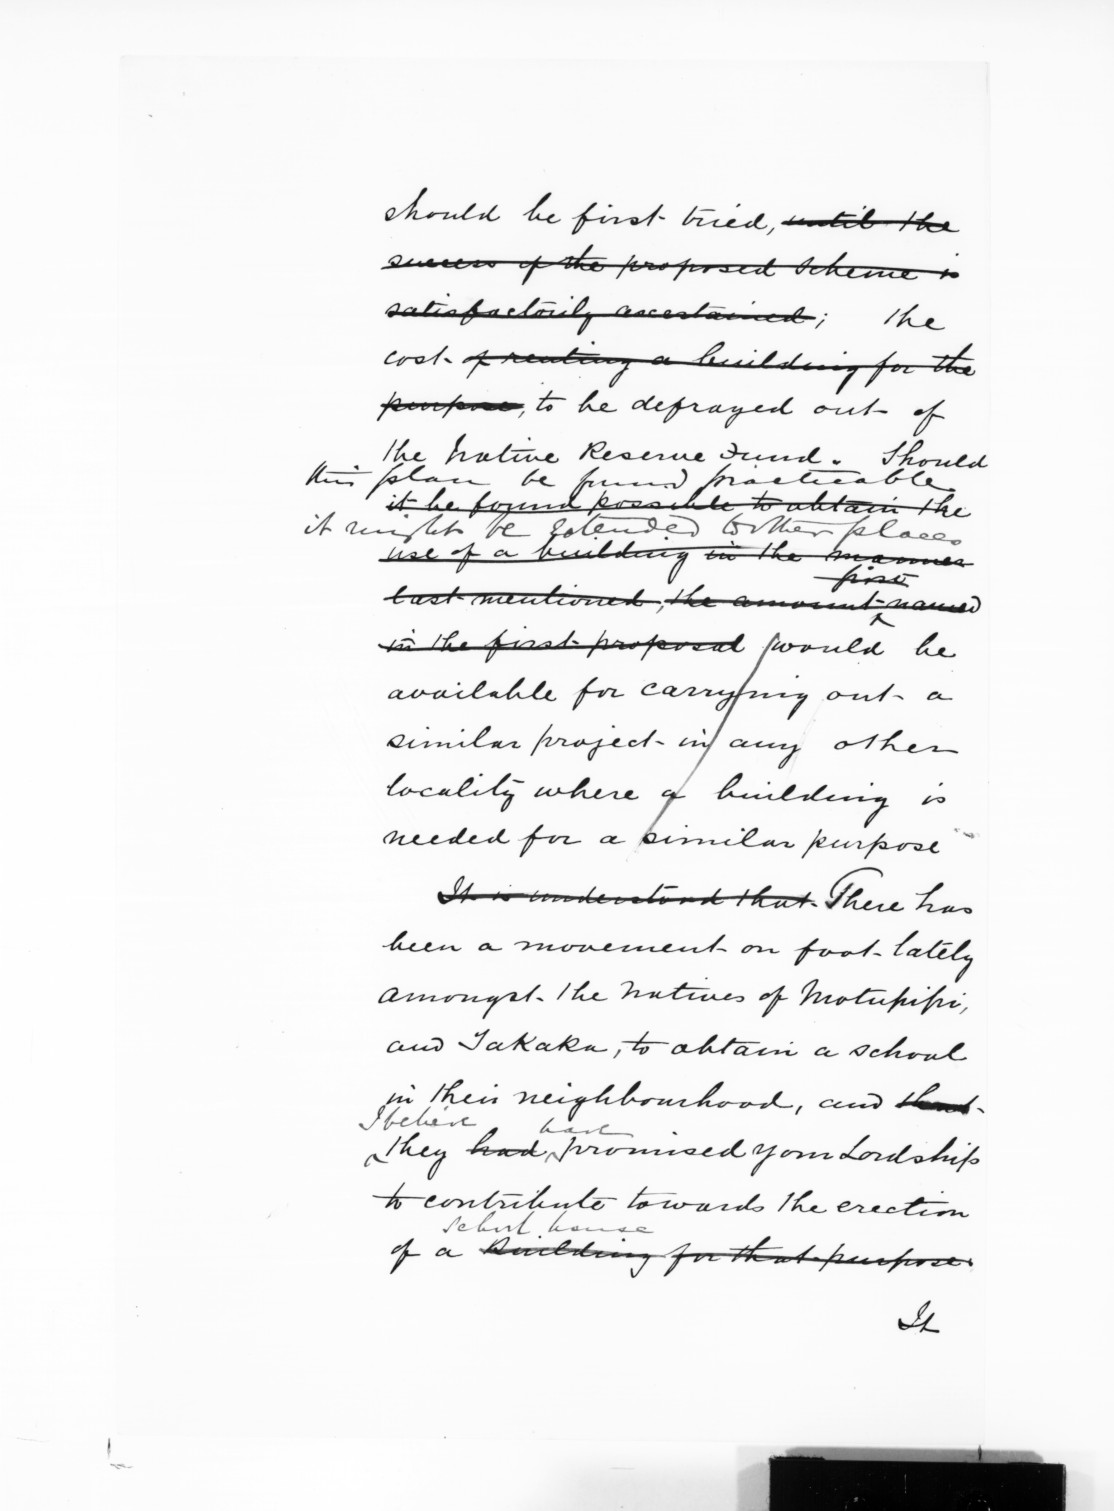 should be first tried, until the
success of the proposed scheme is
satisfactorily ascertained; the
cost of renting a building for the
purpose, to be defrayed out of
the Native Reserve Fund. Should
this plan be found practicable
it be found possible to obtain the
it might be extended to other places
use of a building in the manner
first
last mentioned, the amount named
in the first proposal would be
available for carrying out a
similar project in any other
locality where a building is
needed for a similar purpose
It is understood that There has
been a movement on foot lately
amongst the Natives of Motupipi,
and Takaka, to obtain a school
in their neighbourhood, and that
I believe have
they had promised your Lordship
to contribute towards the erection
school house
of a Building for that purpose.
It